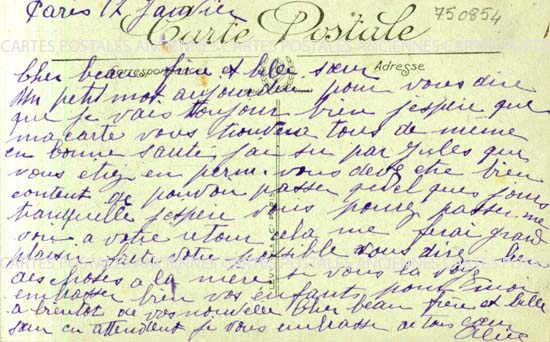 Paris 12 Janvier
750854
Carte Postale
CARTES POSTALES ANCIENNES
Correspondance
Adresse
Cher beau frère et belle sœur
Un petit mot aujourdhui pour vous dire
que je vais toujour bien j'espère que
ma carte vous trouvera tous de même
en bonne santé, j'ai su par Jules que
vous étiez en perm. vous devez etre bien
content de pouvoir passer quelques jours
tranquille j'espère vous pourez passer me
voir a votre retour cela me ferai grand
plaisir faite votre possible vous dire bien
des choses a la mère si vous la voyez
embrasser bien vos enfant pour moi
a bientot de vos nouvelle Cher beau frère et belle
sœur en attendent je vous embrasse de tous cœur